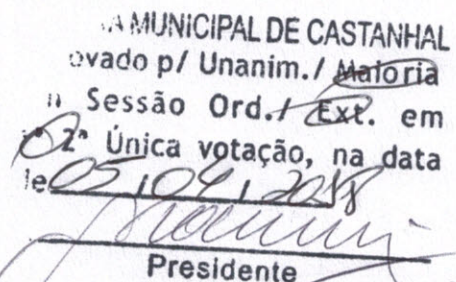 A MUNICIPAL DE CASTANHAL
ovado p/ Unanim./ Maioria
Sessão Ord./ Ext. em
2ª Única votação, na data
le 05 / 04 / 2018
Presidente